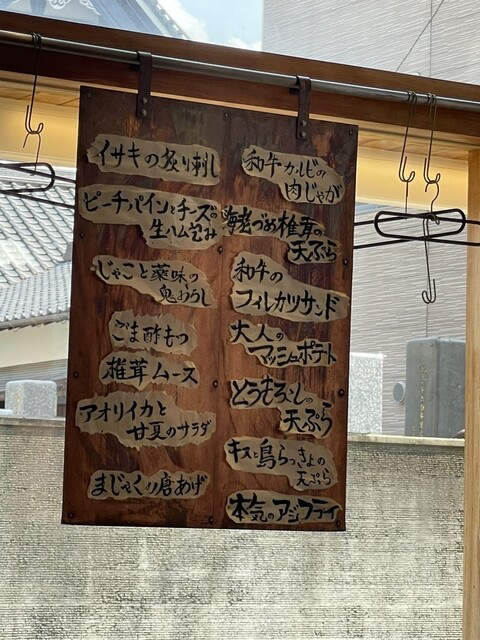 和牛カルビの
肉じゃが
海老づめ椎茸の
天ぷら
和牛の
フィルカツサンド
大人の
マッシュポテト
とうもろこしの
天ぷら
キスと島らっきょの
天ぷら
本気のアジフライ
イサキの炙り刺し
ピーチパインとチーズの
生ハム包み
じゃこと薬味の
鬼おろし
ごま酢もつ
椎茸ムース
アオリイカと
甘夏のサラダ
まじゃくの唐あげ